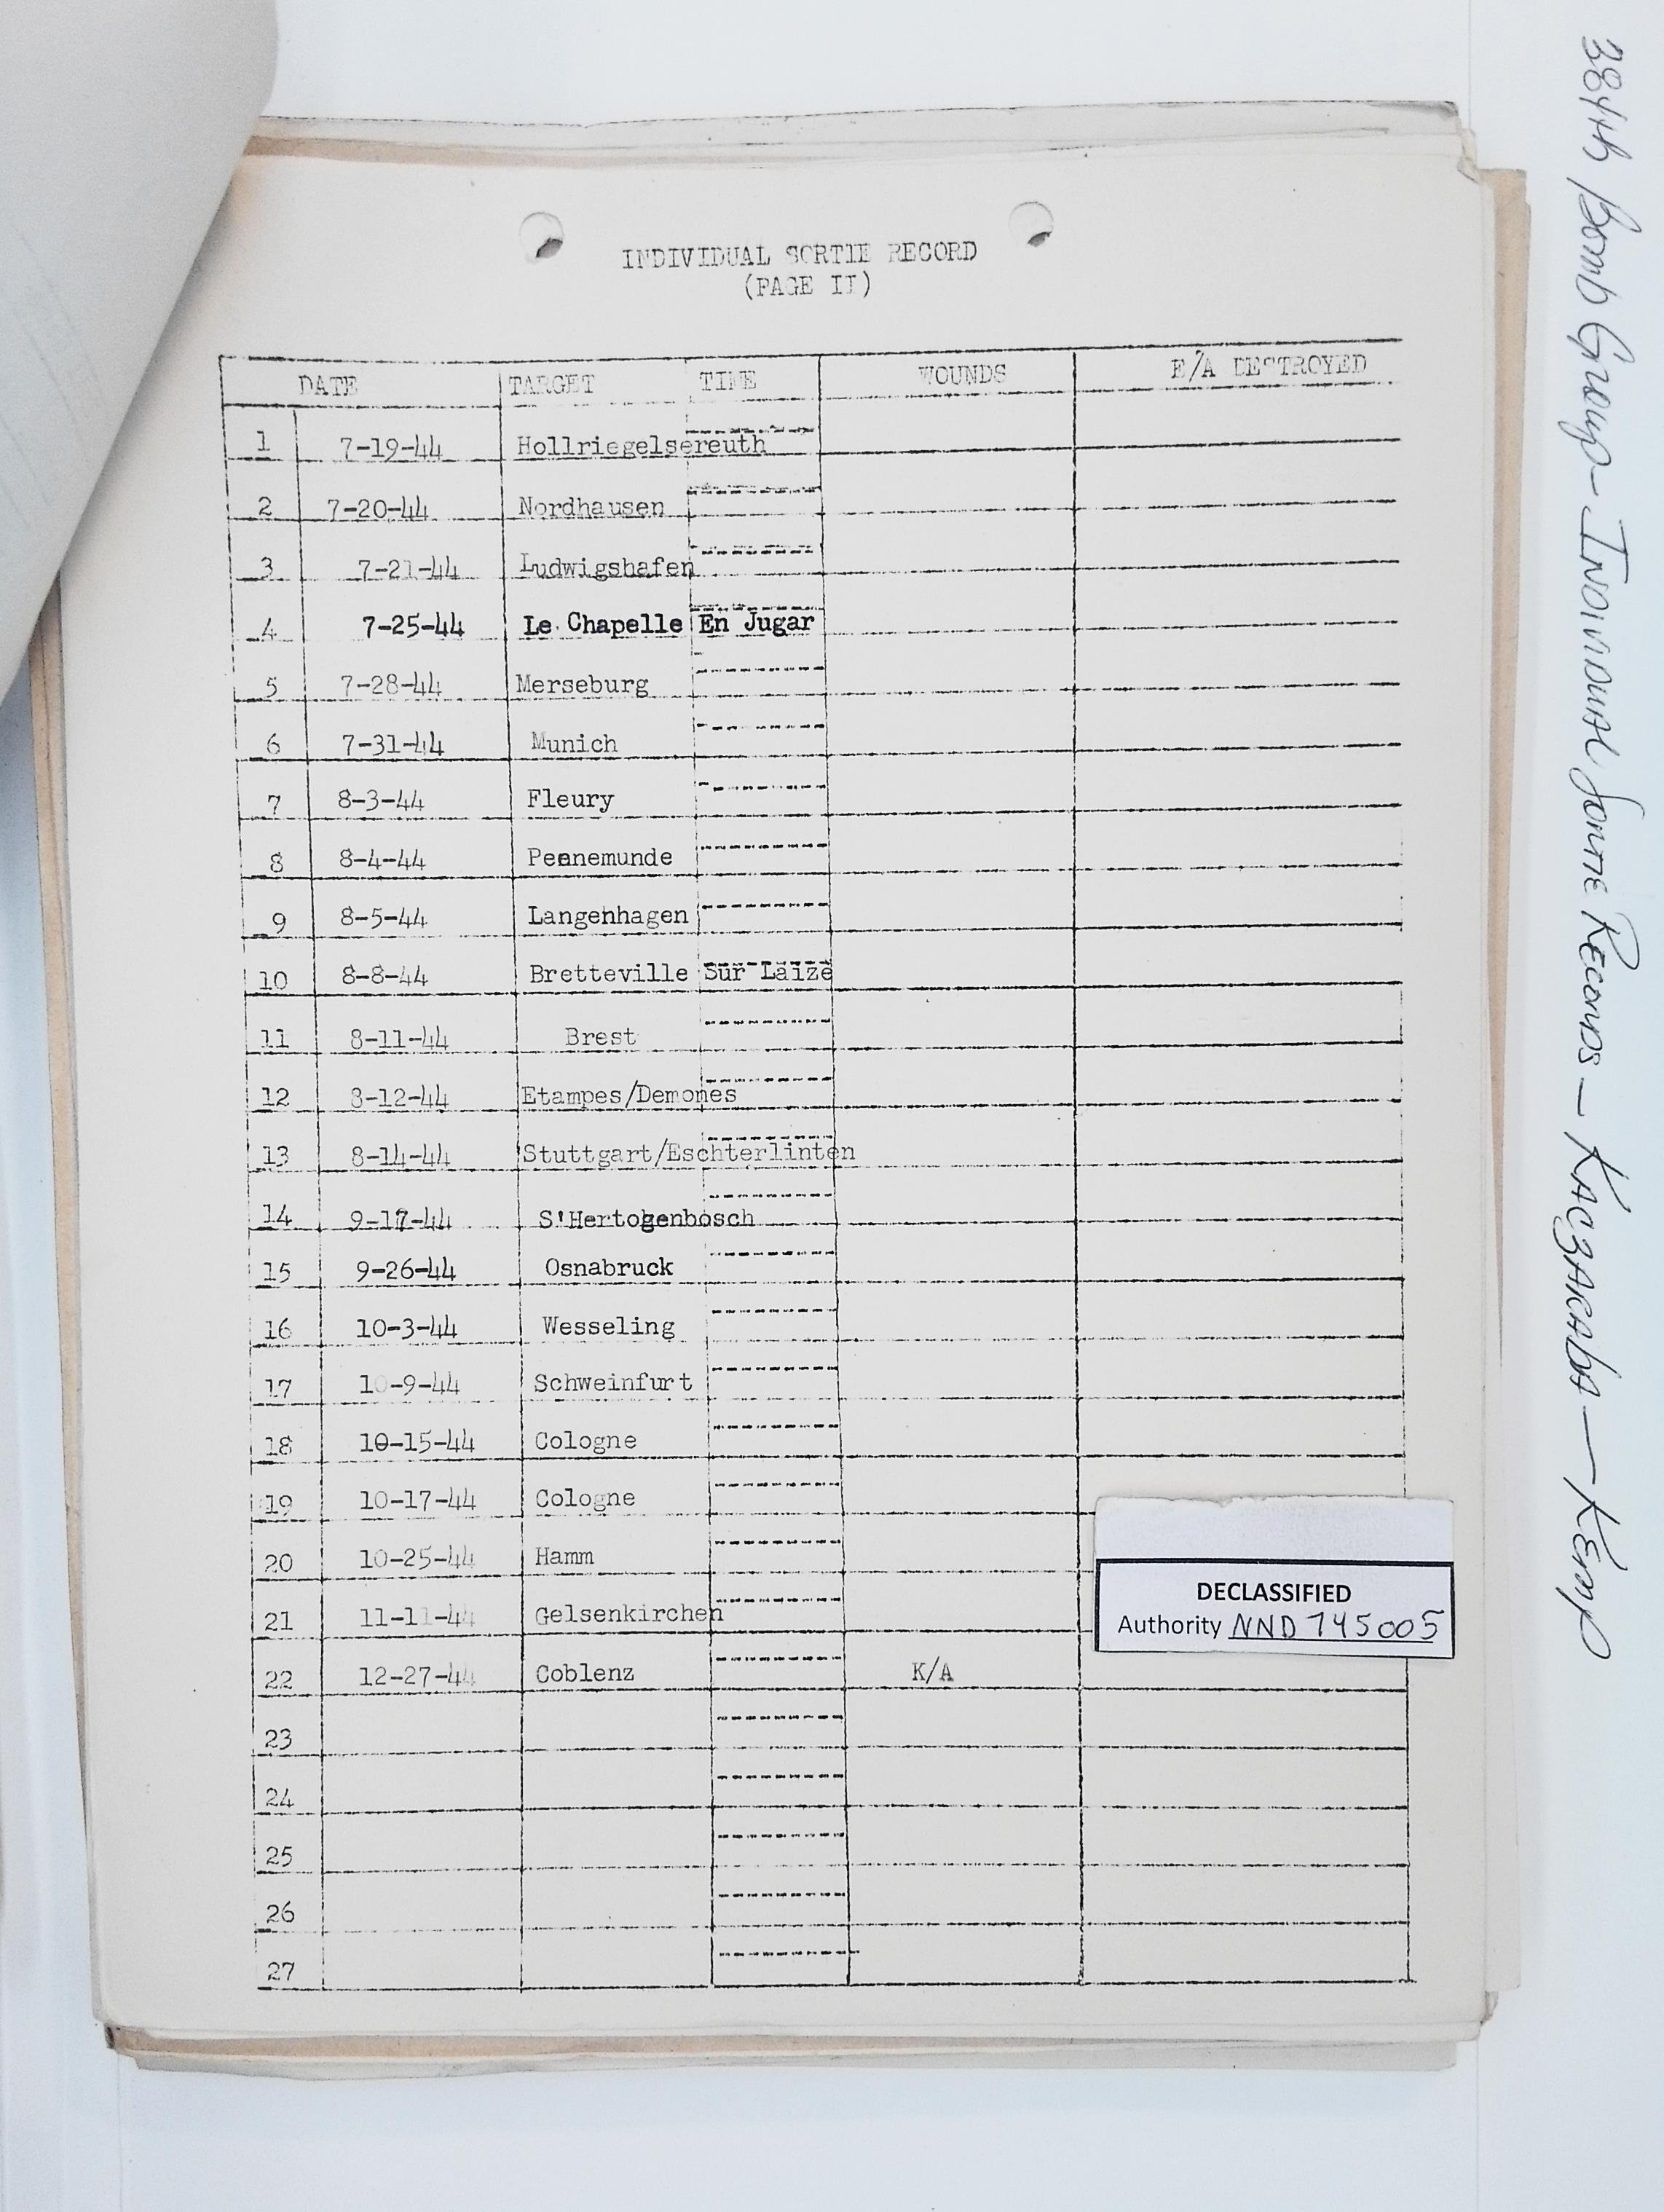 INDIVIDUAL SORTIE RECORD
(PAGE II)
DATE TARGET TIME WOUNDS E/A DESTROYED
1 7-19-44 Hollriegelsereuth
2 7-20-44 Nordhausen
3 7-21-44 Ludwigshafen
4 7-25-44 Le Chapelle En Jugar
5 7-28-44 Merseburg
6 7-31-44 Munich
7 8-3-44 Fleury
8 8-4-44 Peenemunde
9 8-5-44 Langenhagen
10 8-8-44 Bretteville Sur Laize
11 8-11-44 Brest
12 8-12-44 Etampes/Demones
13 8-14-44 Stuttgart/Eschterlinten
14 9-17-44 S'Hertogenbosch
15 9-26-44 Osnabruck
16 10-3-44 Wesseling
17 10-9-44 Schweinfurt
18 10-15-44 Cologne
19 10-17-44 Cologne
20 10-25-44 Hamm
21 11-11-44 Gelsenkirchen
22 12-27-44 Coblenz K/A
23
24
25
26
27
DECLASSIFIED
Authority NND 745005
384th Bomb Group - Individual Sortie Records - Kaczaraba - Kemp